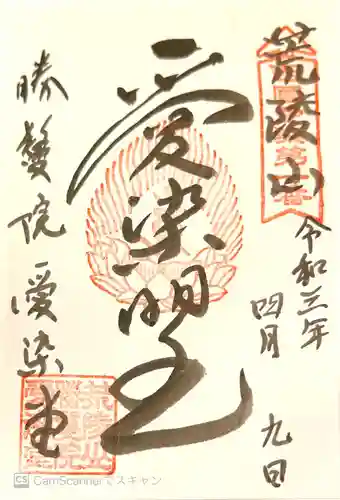 荒陵山
令和三年
四月
九日
愛染明王
勝鬘院 愛染堂
CS CamScannerでスキャン